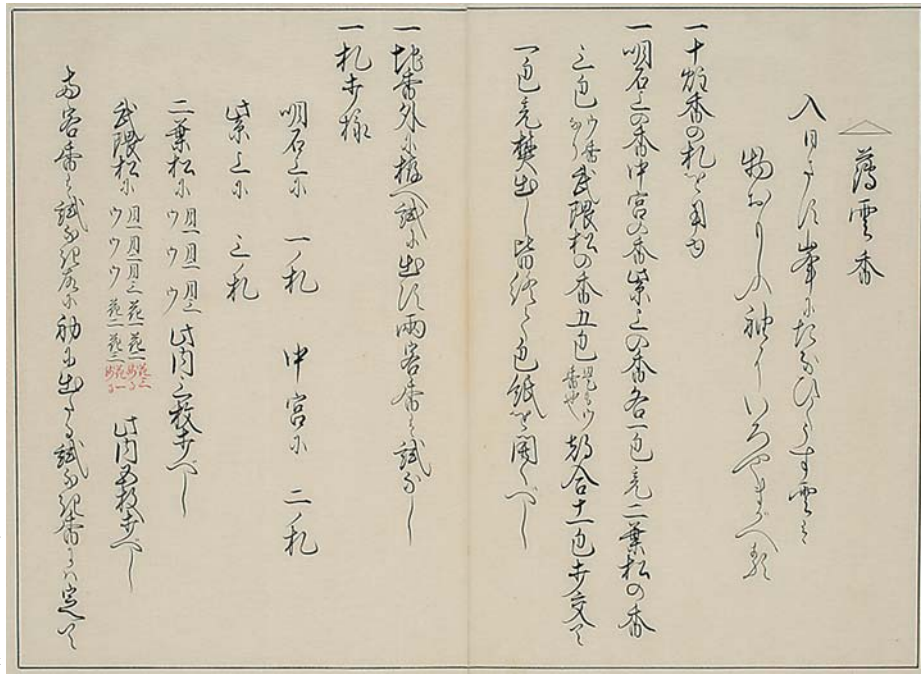 薄雲香
入日さす峯にたなひくうす雲ハ
物おもふ袖にいろやまかへる
一十炷香の札を用ゆ
一明石上の香中宮の香紫上の香各一包充二葉松の香
三包ウ香なり武隈松の香五包是もウ香也都合十一包打交て
一包充焚出し皆終て包紙を開くべし
一地香外に拵へ試に出す両客香ハ試なし
一札打様
明石上に 一ノ札 中宮に 二ノ札
紫上に 三ノ札
二葉松に 月一 月二 ウ ウ ウ 此内三枚打べし
武隈松に 月一 月二 月三 花一 花二 ウ ウ ウ 此内五枚打べし
両客香ハ試なき故に初に出たる試なき香にハ定て